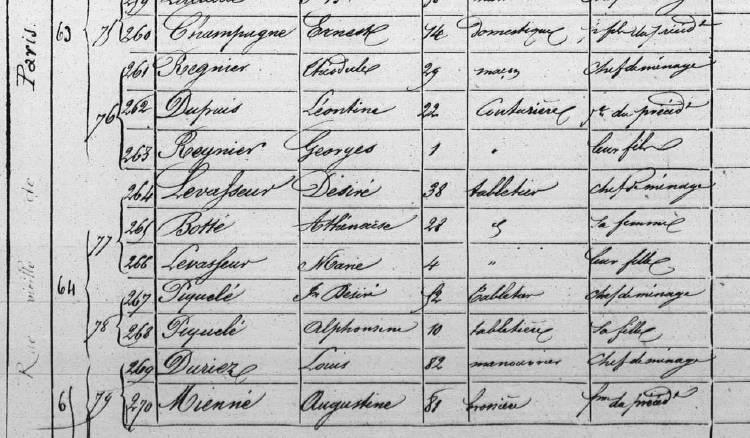 63 75 260 Champagne Ernest 74 domestique
261 Regnier Théodule 29 maçon chef de ménage
76 262 Dupuis Léontine 22 Couturière fe du précédt
263 Regnier Georges 1 " leur fils
264 Levasseur Désiré 38 tabletier chef de ménage
77 265 Botté Athénaïse 28 sa femme
266 Levasseur Marie 4 " leur fille
64 267 Piquelé Jn Désiré 52 Tabletier chef de ménage
78 268 Piquelé Alphonsine 10 tabletière sa fille
269 Duriez Louis 82 manouvrier chef de ménage
79 270 Mienné Augustine 81 brossière fme du précédt
Rue vieille de Paris